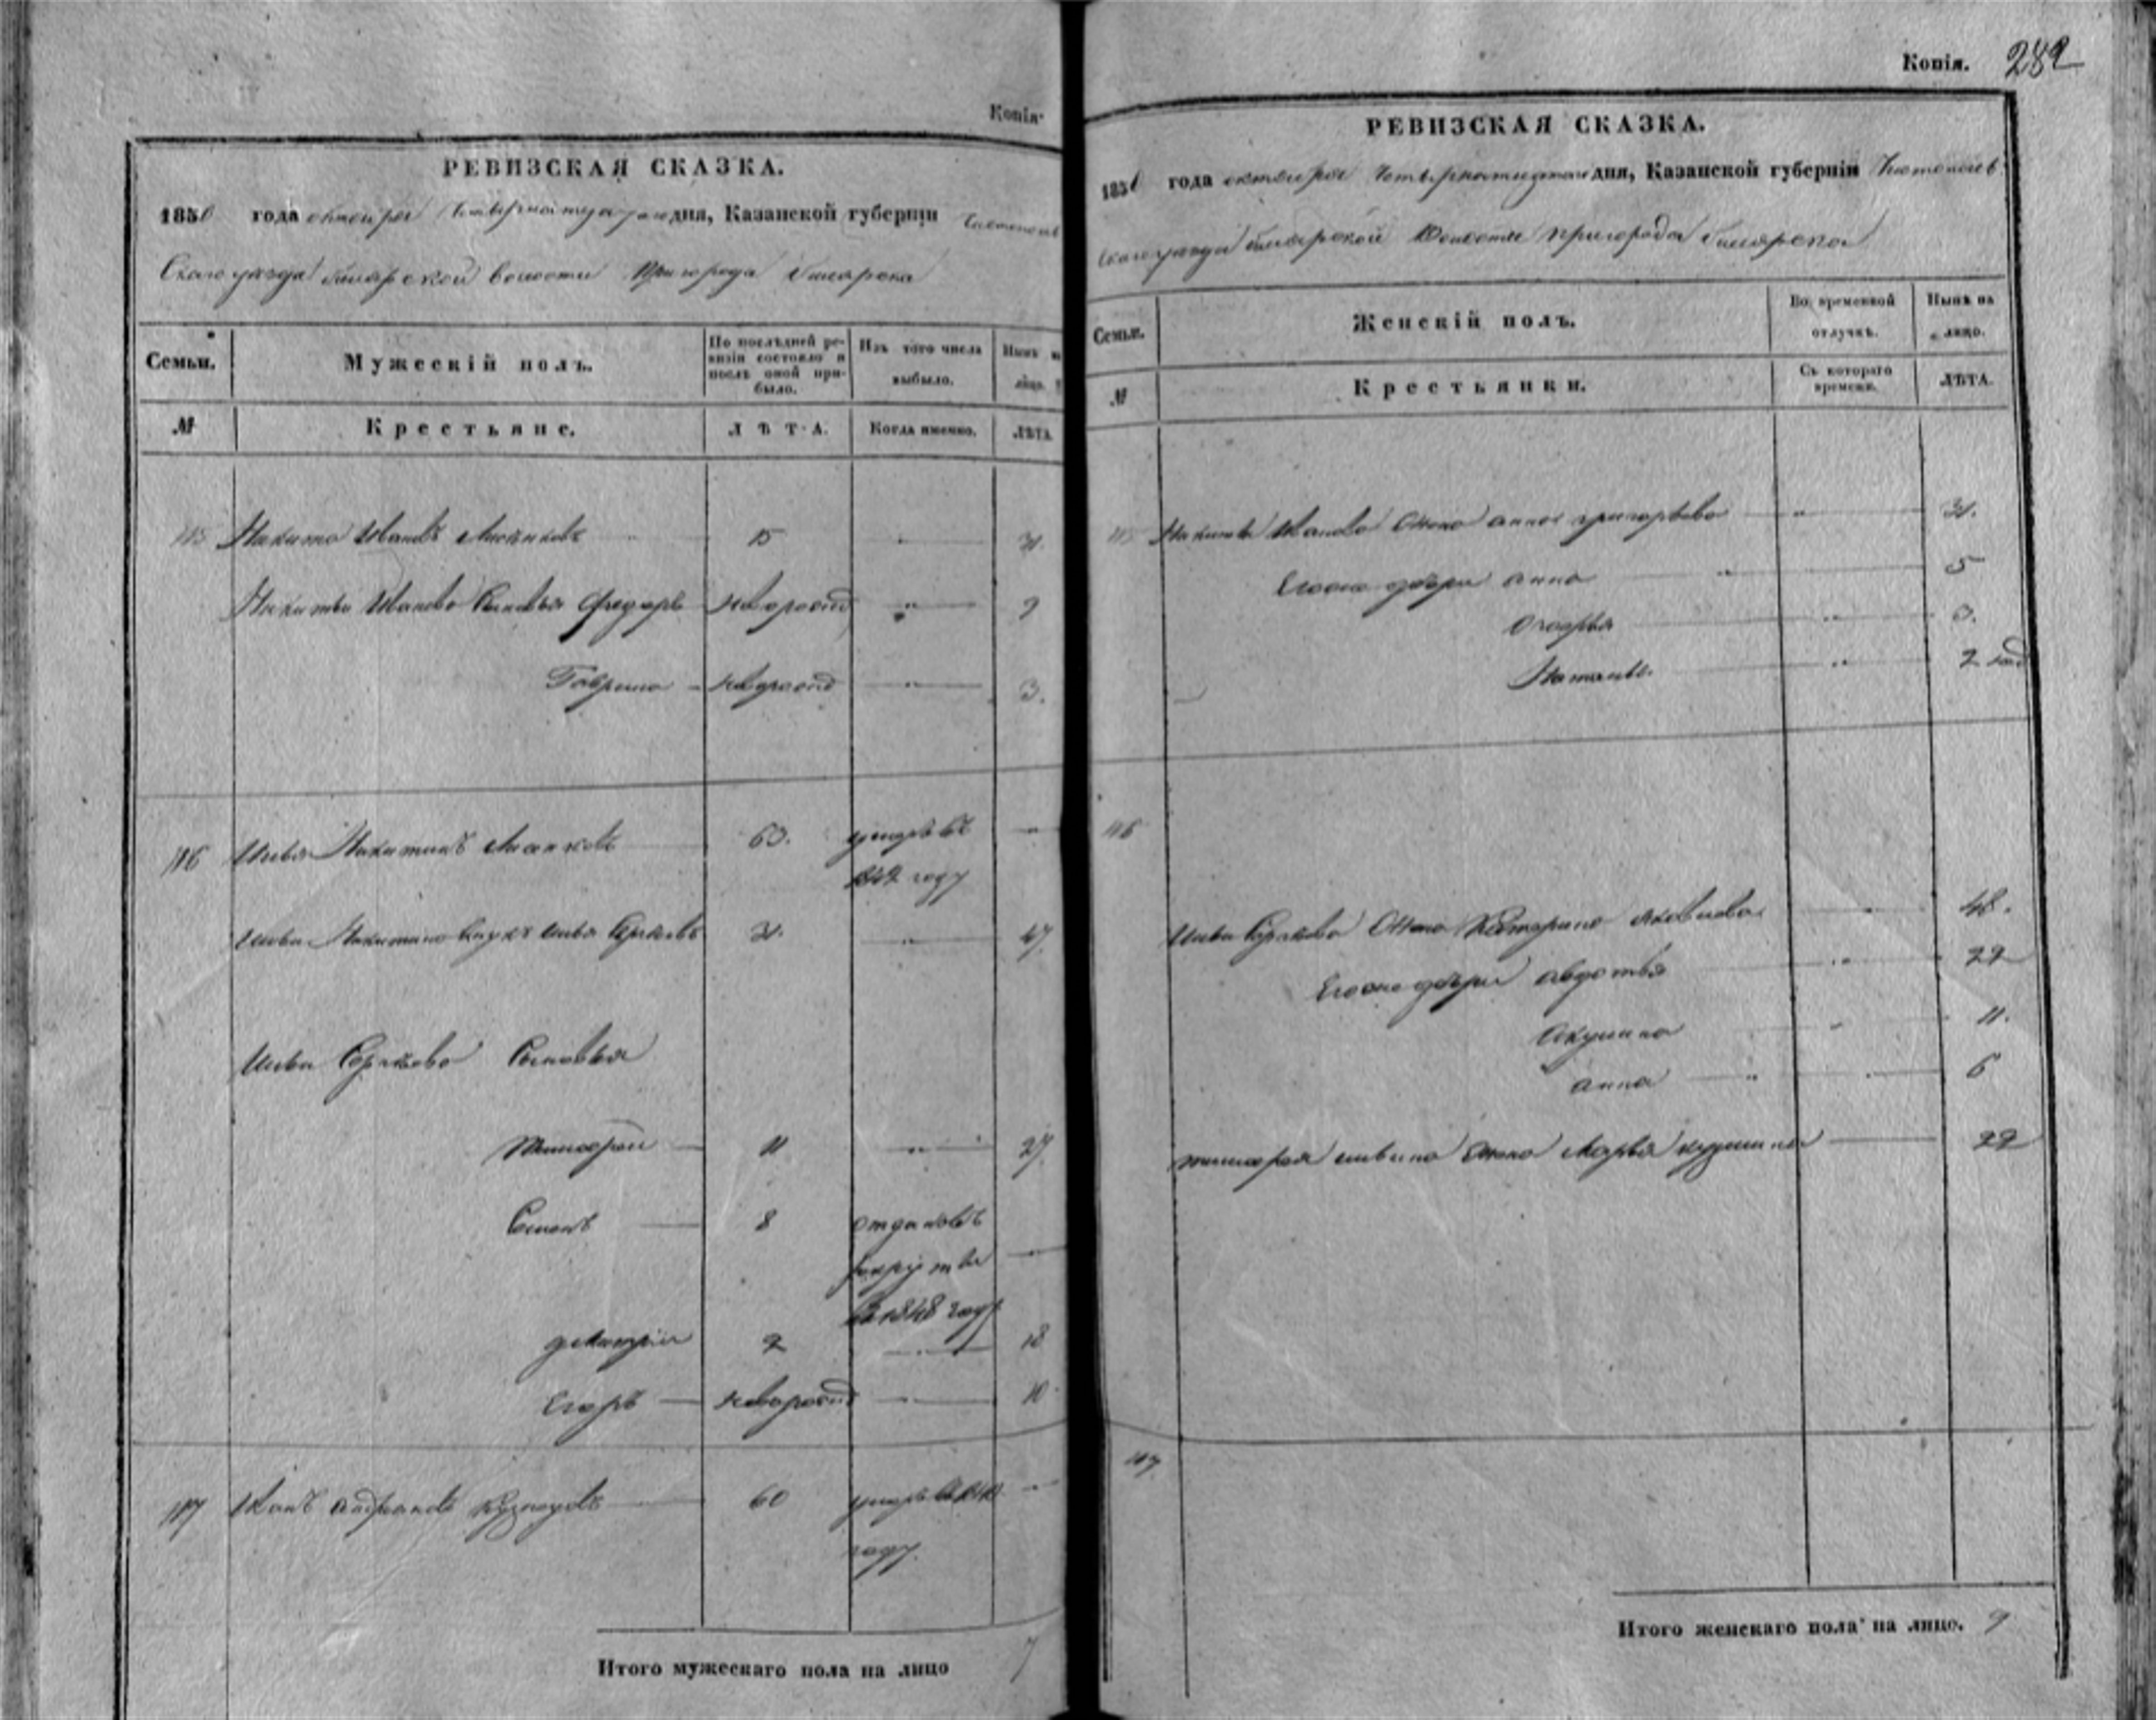 Копія.
РЕВИЗСКАЯ СКАЗКА.
1850 года октября дня, Казанской губерніи
Скаго уезда Билярской волости Пригорода Билярска
Семьи. Мужескій полъ. По послѣдней ревизіи состояло и послѣ оной прибыло. Изъ того числа выбыло. Нынѣ на лицо.
№ Крестьяне. ЛѢТА. Когда именно. ЛѢТА
115 Никита Ивановъ 15 31.
Никиты Иванова Сыновья Федоръ новорожд 9
Гаврила новорожд 3.
116 Илья Никитинъ 63. умеръ въ
1842 году
Ильи Никитина внукъ Илья Сергѣевъ 31. 47.
Ильи Сергѣева Сыновья
Тимофей 11 27.
Семенъ 8 отданъ въ
рекруты
въ 1848 году
Дмитрій 2 18
Егоръ новорожд 10
117 Иванъ Кузнецовъ 60 умеръ
году.
Итого мужескаго пола на лицо 7
Копія. 282
РЕВИЗСКАЯ СКАЗКА.
1850 года октября Четырнадцатаго дня, Казанской губерніи Чистополь
Скаго уезда Билярской Волости пригорода Билярска
Семьи. Женскій полъ. Во временной отлучкѣ. Нынѣ на лицо.
№ Крестьянки. Съ котораго времени. ЛѢТА.
115 Никиты Иванова Жена анна григорьева 31.
Егоже дочери анна 5
3.
Наталья 2 нед
116
Ильи Сергѣева Жена Катерина Яковлева 48.
Егоже дочери авдотья 22
Акулина 11.
анна 6
тимофея ильина жена Марья 22
117
Итого женскаго пола на лицо. 9